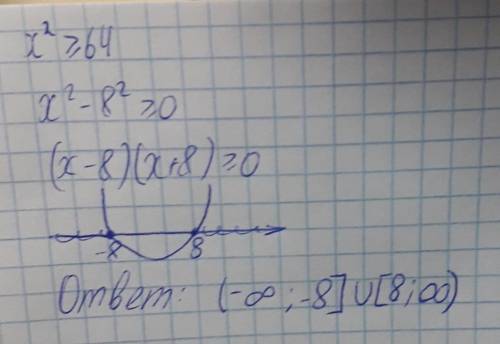 x² ≥ 64
x² - 8² ≥ 0
(x - 8)(x + 8) ≥ 0
-8 8
Ответ: (-∞; -8] ∪ [8; ∞)